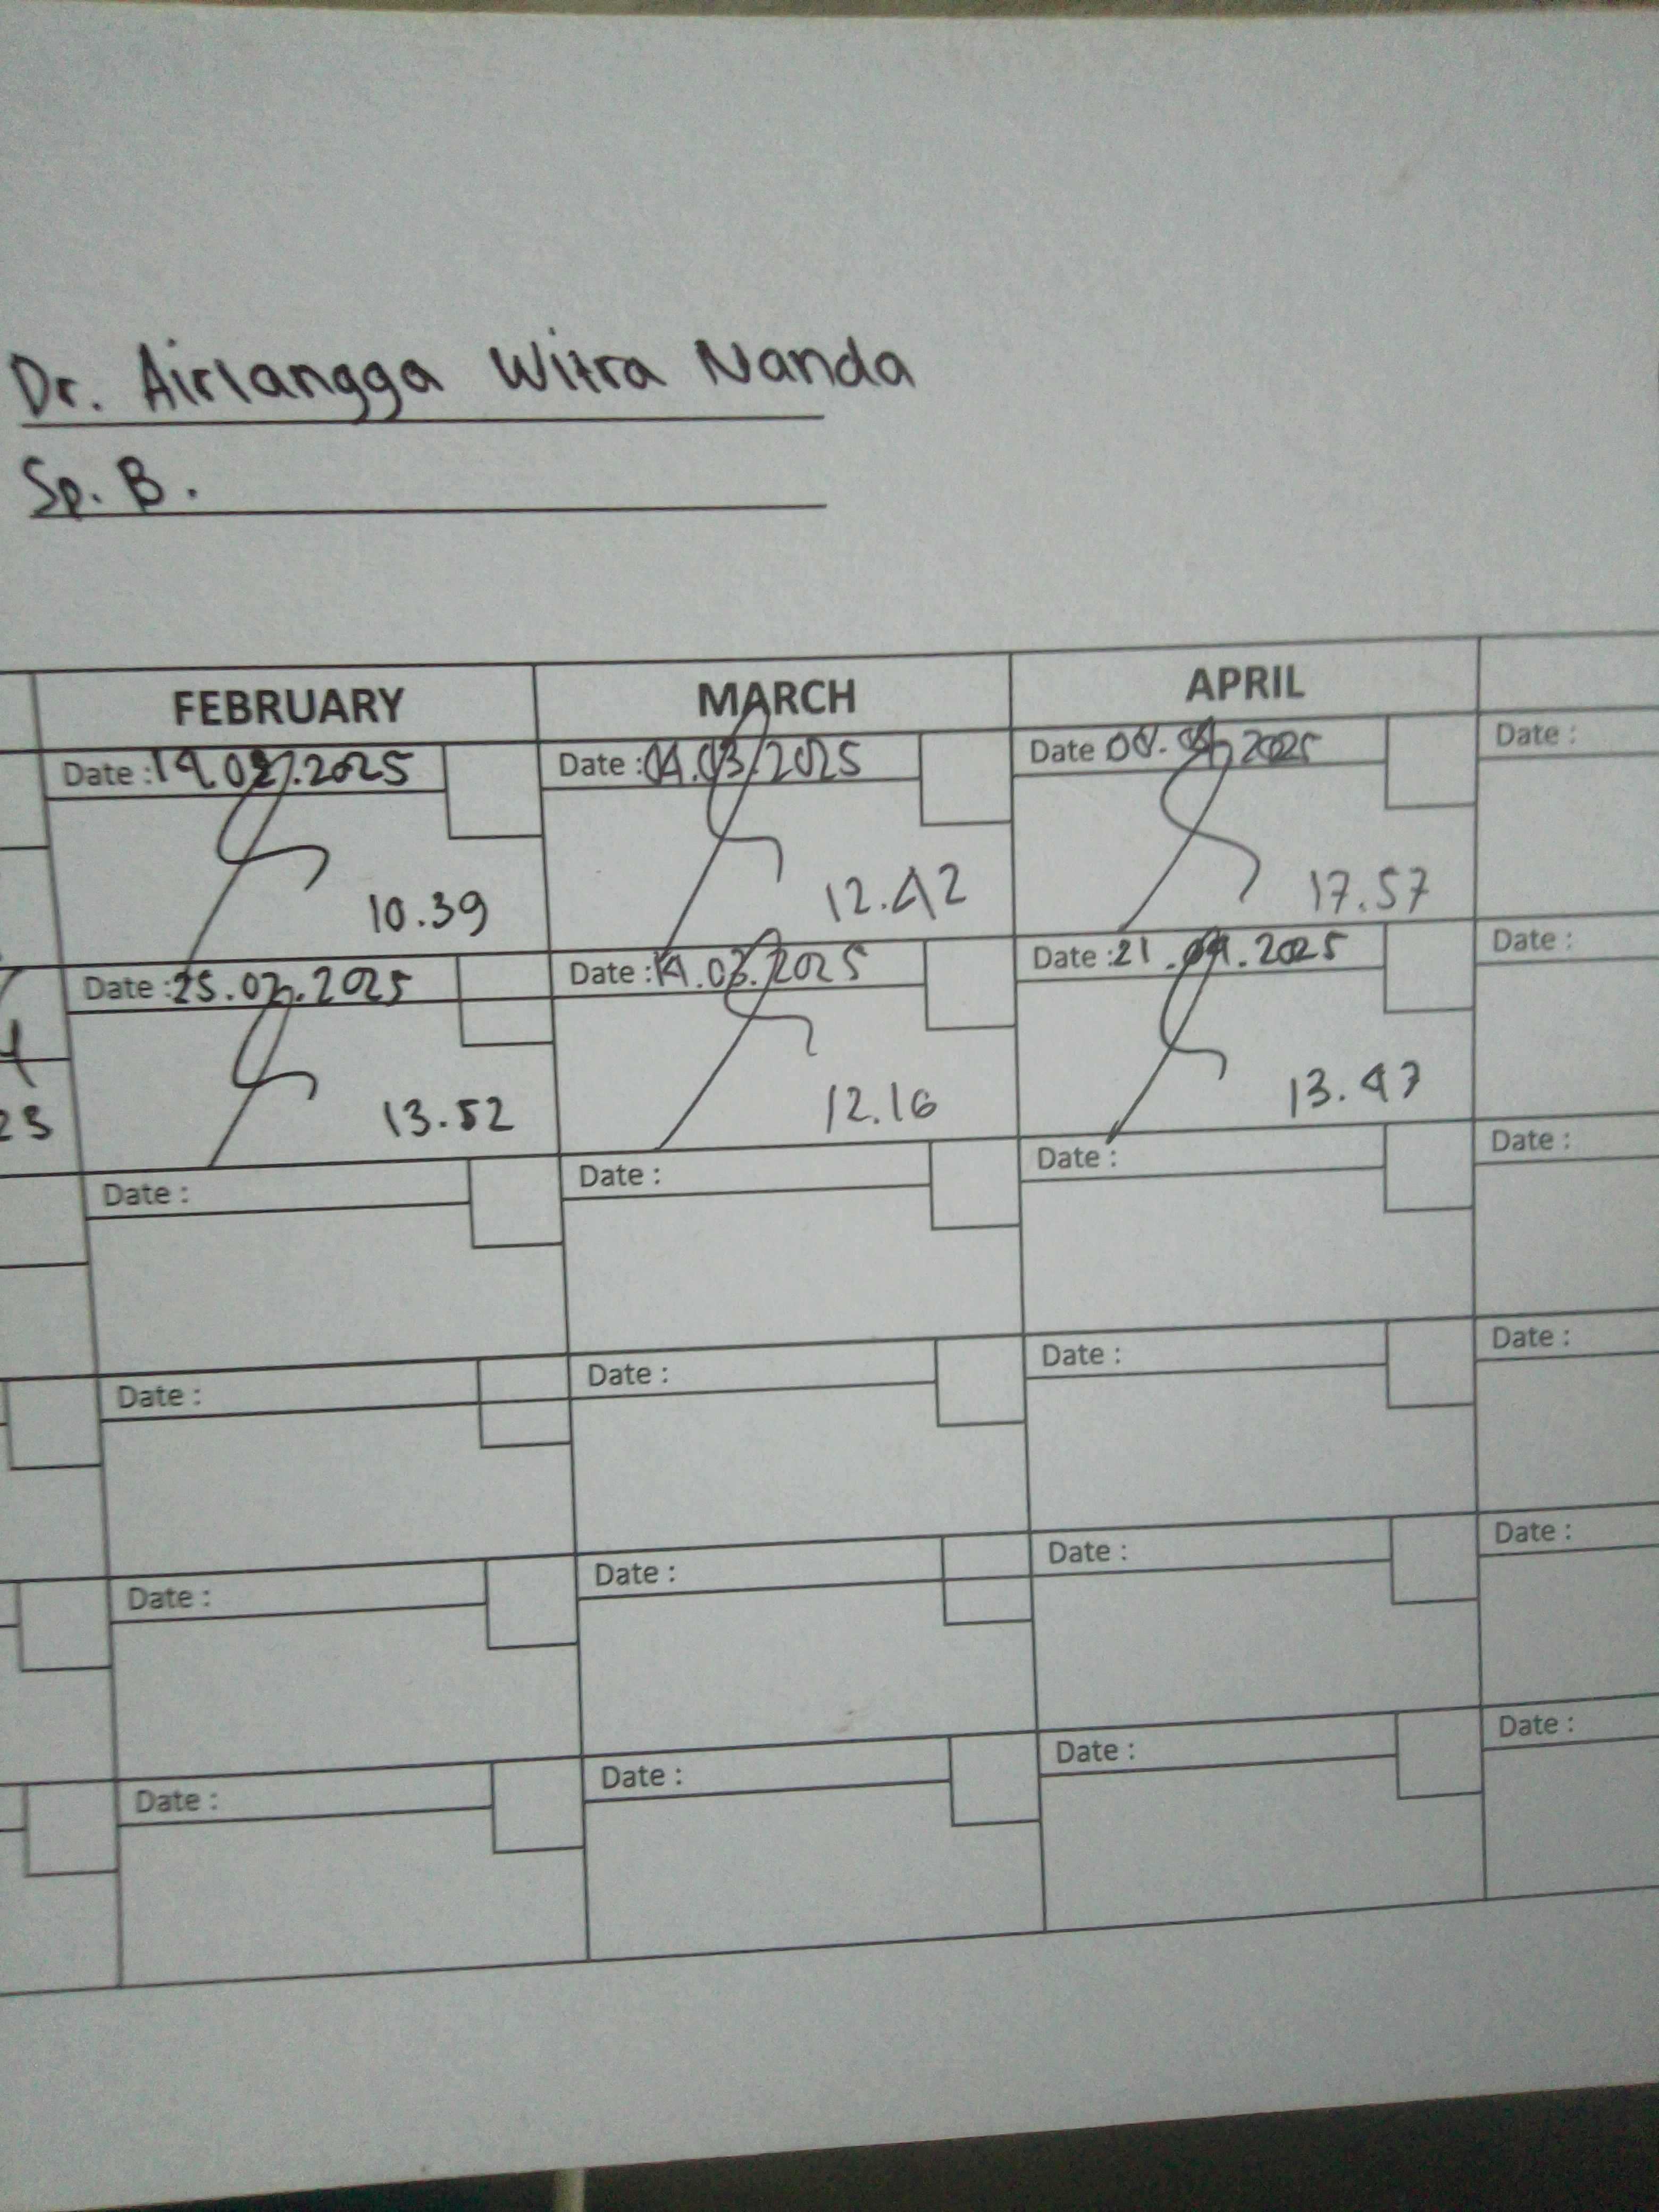 Dr. Airlangga Witra Nanda
Sp. B.
FEBRUARY MARCH APRIL
Date : 19.02.2025 Date : 04.03.2025 Date 2025 Date :
10.39 12.42 17.57
Date : 25.02.2025 Date : 14.03.2025 Date : 21.04.2025 Date :
13.52 12.16 13.47
Date : Date : Date : Date :
Date : Date : Date : Date :
Date : Date : Date : Date :
Date : Date : Date : Date :